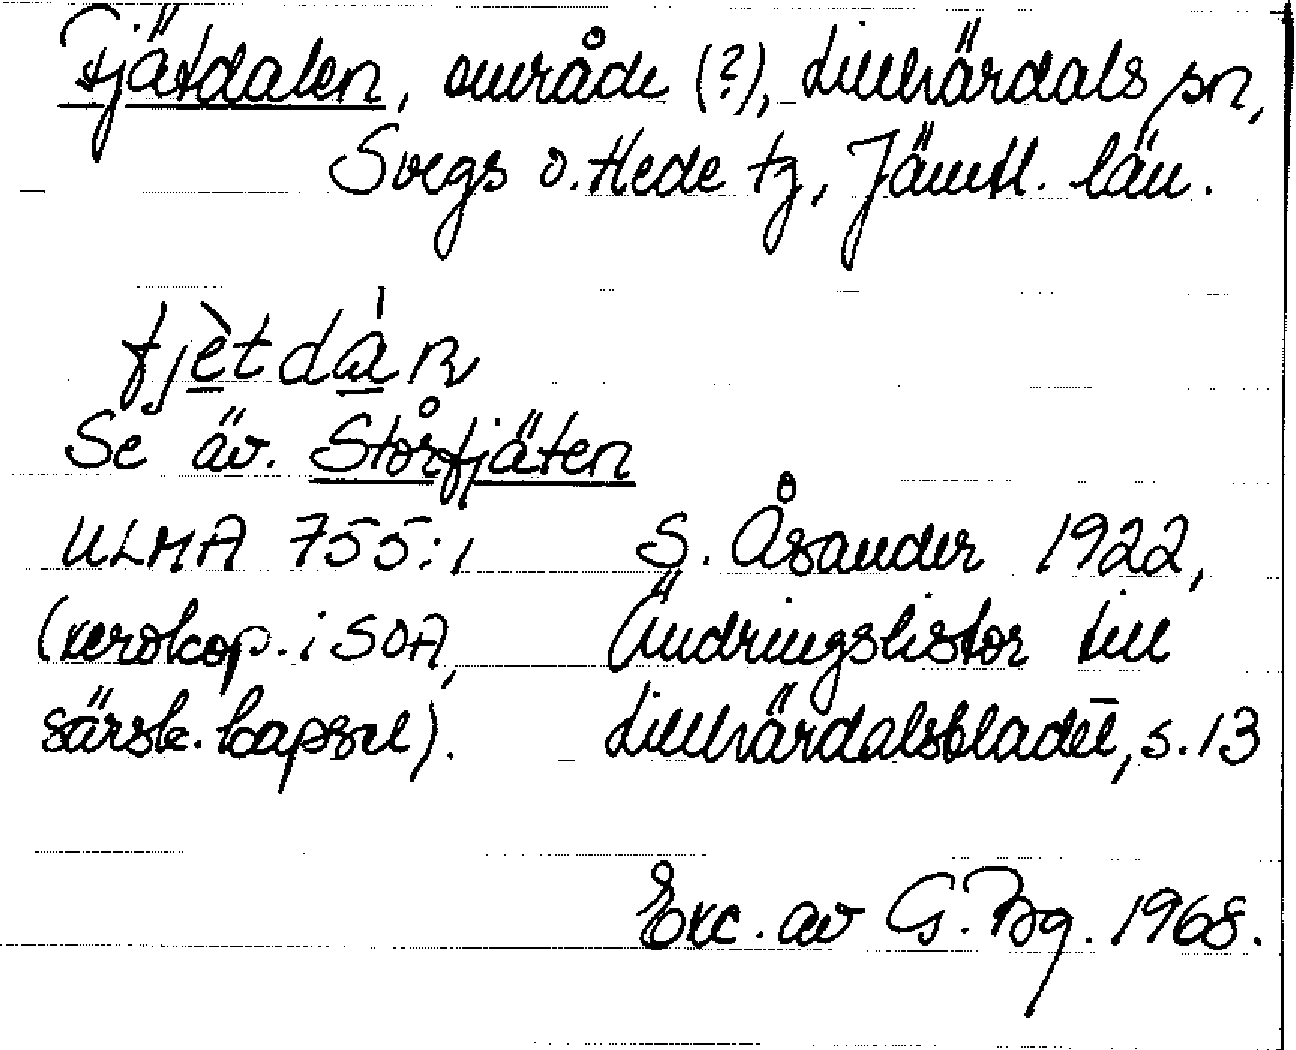 Fjätdalen, område (?), Lillhärdals sn,
Svegs o. Hede tg, Jämtl. län.
fjètdáɴ
Se äv. Storfjäten
ULMA 755:1 S. Åsander 1922,
(xerokop. i SOA, Ändringslistor till
särsk. kapsel). Lillhärdalsbladet, s. 13
Exc. av G. Bg. 1968.